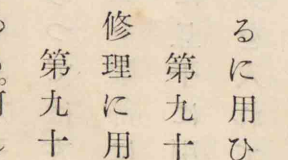 るに用ひ
第九十
修理に用
第九十